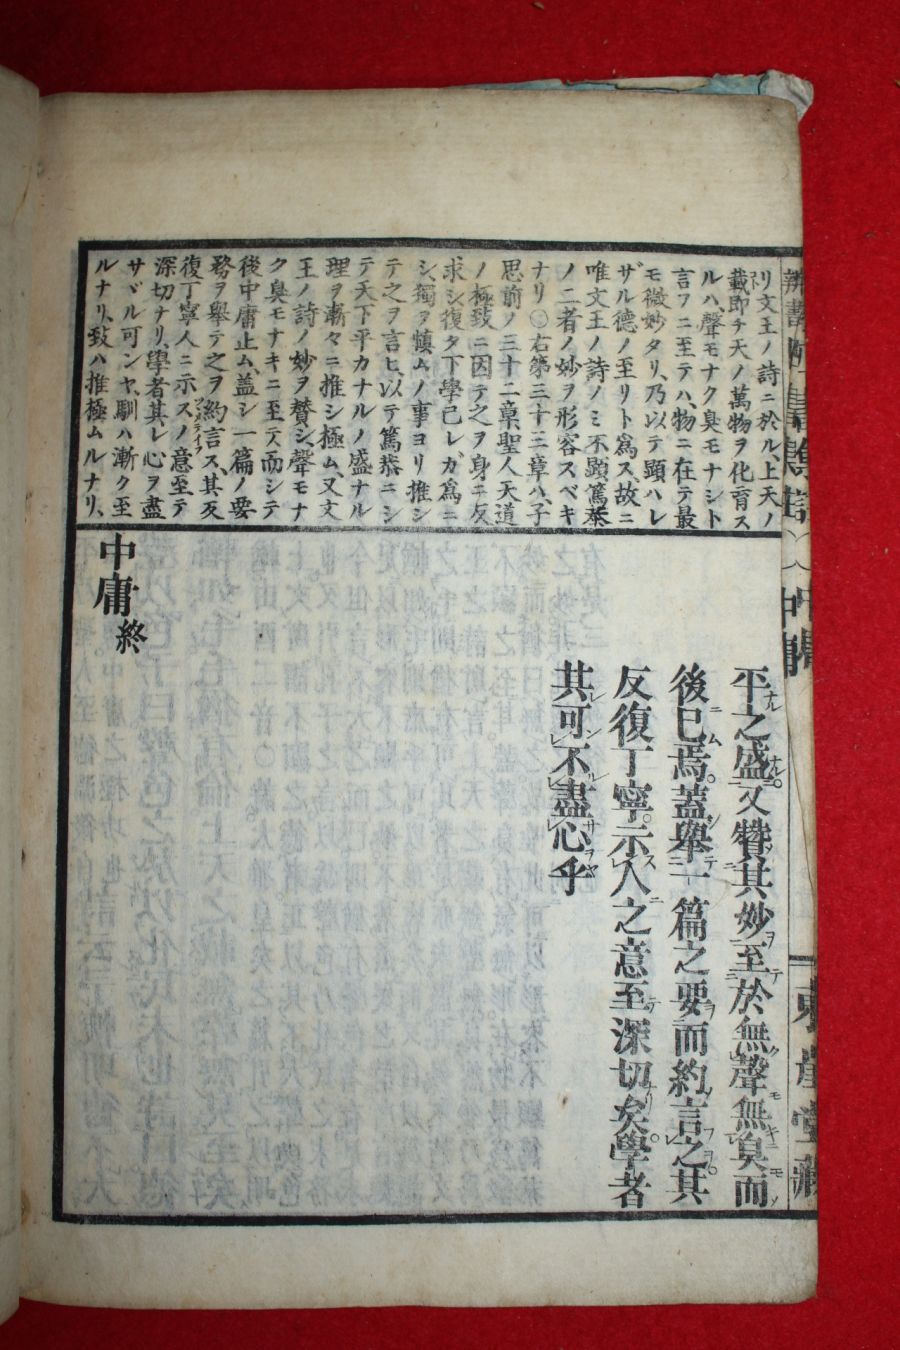 リ文王ノ詩ニ於ル、上天ノ
載即チ天ノ萬物ヲ化育ス
ルハ、聲モナク臭モナシト
言フニ至テハ、物ニ在テ最
モ微妙タリ、乃以テ顕ハレ
ザル德ノ至リト爲ス、故ニ
唯文王ノ詩ノミ不顕篤恭
ノ二者ノ妙ヲ形容スベキ
ナリ〇右第三十三章ハ、子
思前ノ三十二章聖人天道
ノ極致ニ因テ之ヲ身ニ反
求シ復タ下學己レガ爲ニ
シ、獨ヲ慎ムノ事ヨリ推シ
テ之ヲ言ヒ、以テ篤恭ニシ
テ天下平カナルノ盛ナル
理ヲ漸々ニ推シ極ム、又文
王ノ詩ノ妙ヲ賛シ、聲モナ
ク臭モナキニ至テ而シテ
後中庸止ム、蓋シ一篇ノ要
務ヲ舉テ之ヲ約言ス、其反
復丁寧人ニ示スノ意至テ
深切ナリ、學者其レ心ヲ盡
サバル可ンヤ、馴ハ漸ク至
ルナリ、致ハ推極ムルナリ、
平之盛又贊其妙至於無聲無臭而
後已焉蓋舉一篇之要而約言之其
反復丁寧示人之意至深切矣學者
其可不盡心乎
中庸終